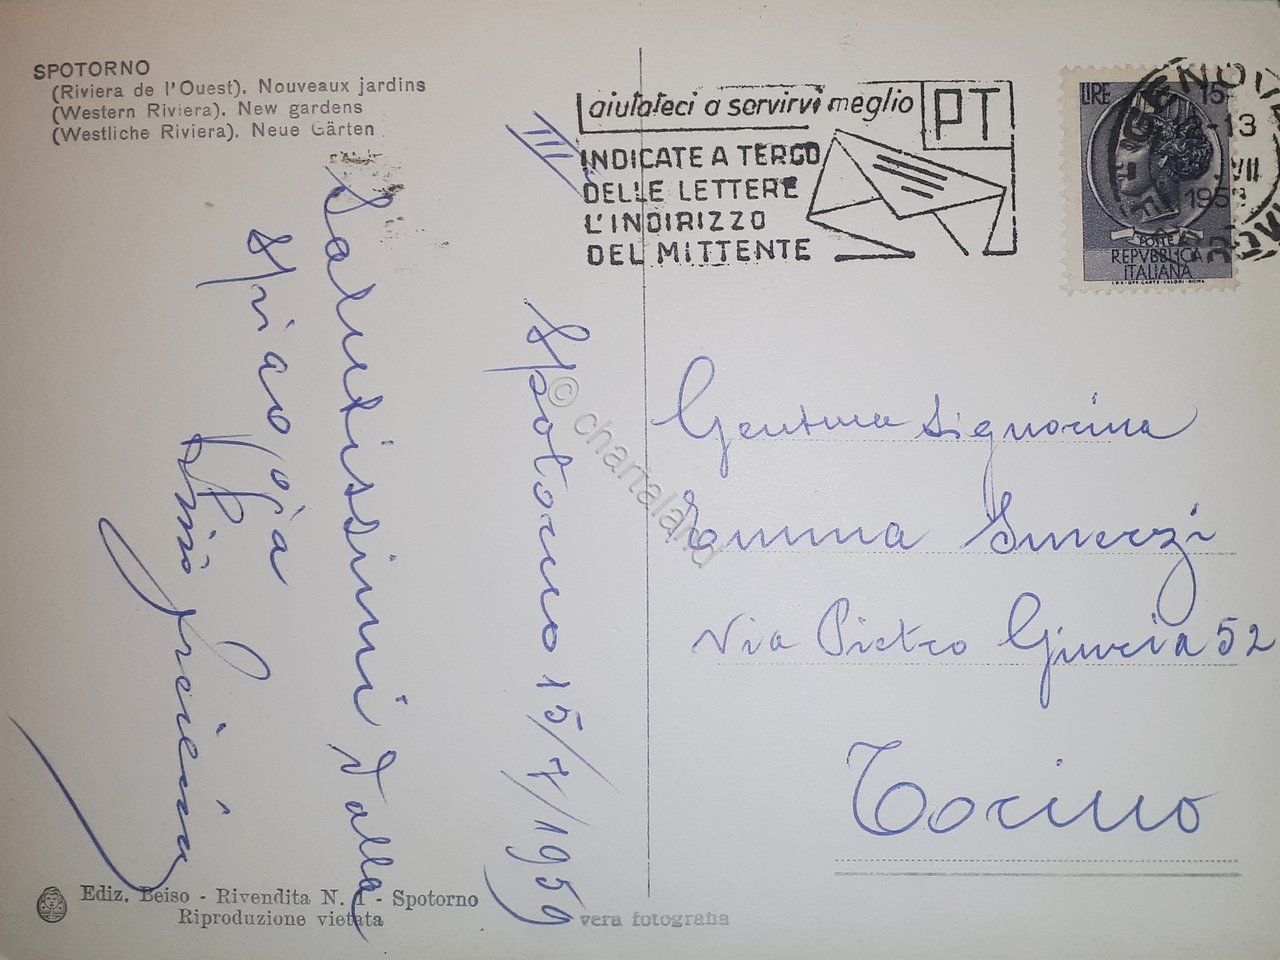 SPOTORNO
(Riviera de l'Ouest). Nouveaux jardins
(Western Riviera). New gardens
(Westliche Riviera). Neue Gärten
aiutateci a servirvi meglio
PT
INDICATE A TERGO
DELLE LETTERE
L'INDIRIZZO
DEL MITTENTE
LIRE 15
POSTE
REPVBBLICA
ITALIANA
GENOVA
-13
VII
195
III
Spotorno 15/7/1959
Salutissimi dalla
spiaggia
Gent.ma Signorina
Emma Smerzi
Via Pietro Giuria 52
Torino
Ediz. Beiso - Rivendita N. 1 - Spotorno
Riproduzione vietata
vera fotografia
© chartaland